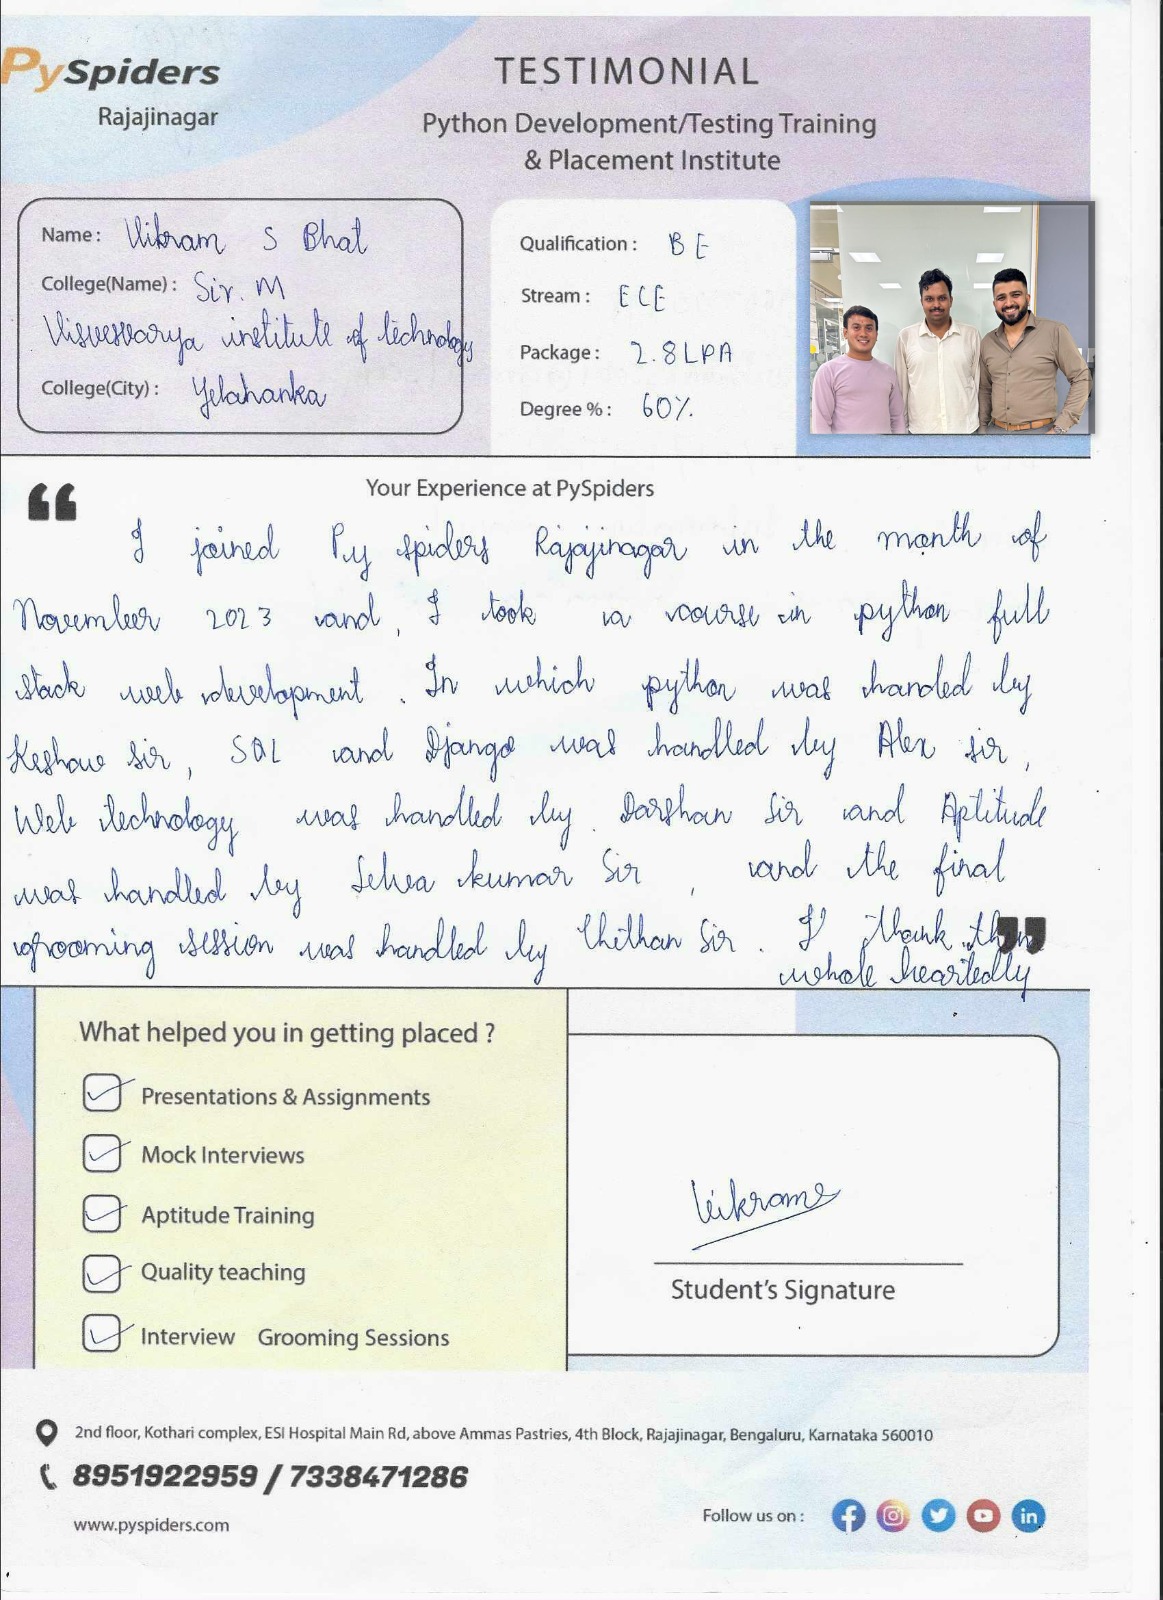 PySpiders
Rajajinagar
TESTIMONIAL
Python Development/Testing Training
& Placement Institute
Name : Vikram S Bhat
College(Name) : Sir. M
Visvesvarya institute of technology
College(City) : Yelahanka
Qualification : BE
Stream : ECE
Package : 2.8LPA
Degree % : 60%
Your Experience at PySpiders
I joined Py spiders Rajajinagar in the month of
November 2023 and, I took a course in python full
stack web development. In which python was handed by
Keshav Sir, SQL and Django was handled by Alex sir,
Web technology was handled by Darshan Sir and Aptitude
was handled by Selva kumar Sir, and the final
grooming session was handled by Chethan Sir. I thank them
whole heartedly
What helped you in getting placed ?
Presentations & Assignments
Mock Interviews
Aptitude Training
Quality teaching
Interview Grooming Sessions
Vikrams
Student's Signature
2nd floor, Kothari complex, ESI Hospital Main Rd, above Ammas Pastries, 4th Block, Rajajinagar, Bengaluru, Karnataka 560010
8951922959 / 7338471286
www.pyspiders.com
Follow us on :